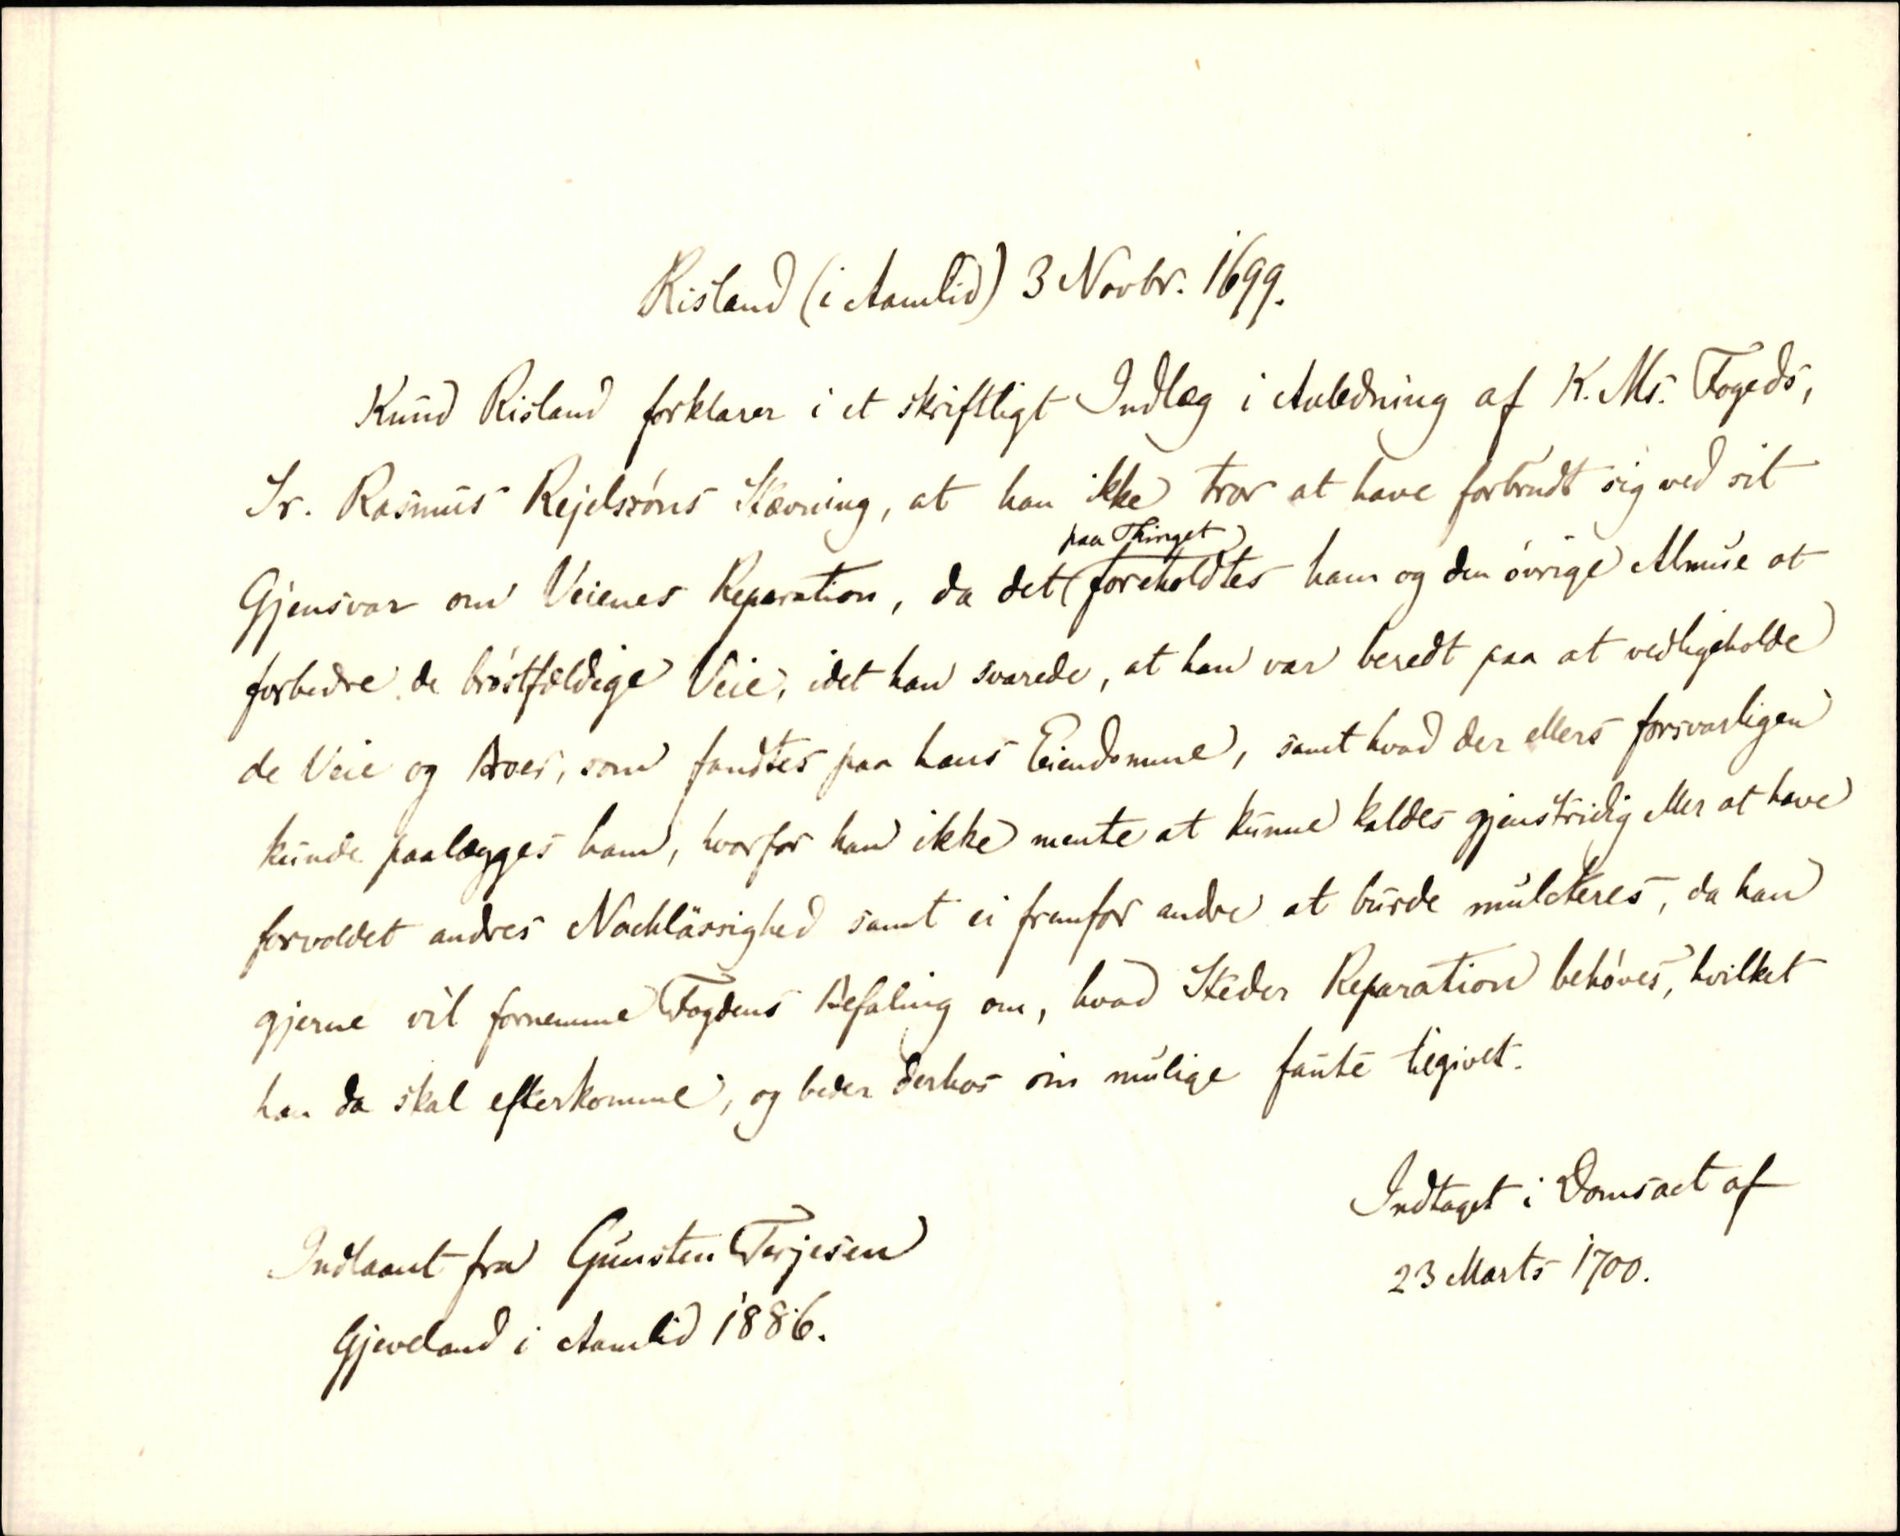 Risland (i Aamlid) 3 Novbr. 1699.
Knud Risland forklarer i et skriftligt Indlæg i Anledning af K. Ms. Fogeds,
Sr. Rasmus Rejelsøns Stævning, at han ikke tror at have forbrudt sig ved sit
paa Thinget
Gjensvar om Veienes Reparation, da det foreholdtes ham og den øvrige Almue at
forbedre de brøstfældige Veie, idet han svarede, at han var beredt paa at vedligeholde
de Veie og Broer, som fandtes paa hans Eiendomme, samt hvad der ellers forsvarligen
kunde paalægges ham, hvorfor han ikke mente at kunne kaldes gjenstridig eller at have
forvoldet andres Nachlässighed samt ei fremfor andre at burde mulcteres, da han
gjerne vil fornemme Fogdens Befaling om, hvad Steder Reparation behøves, hvilket
han da skal efterkomme, og beder derhos sin mulige faute tilgivet.
Indtaget i Domsact af
23 Marts 1700.
Indlaant fra Gunsten Terjesen
Gjeveland i Aamlid 1886.